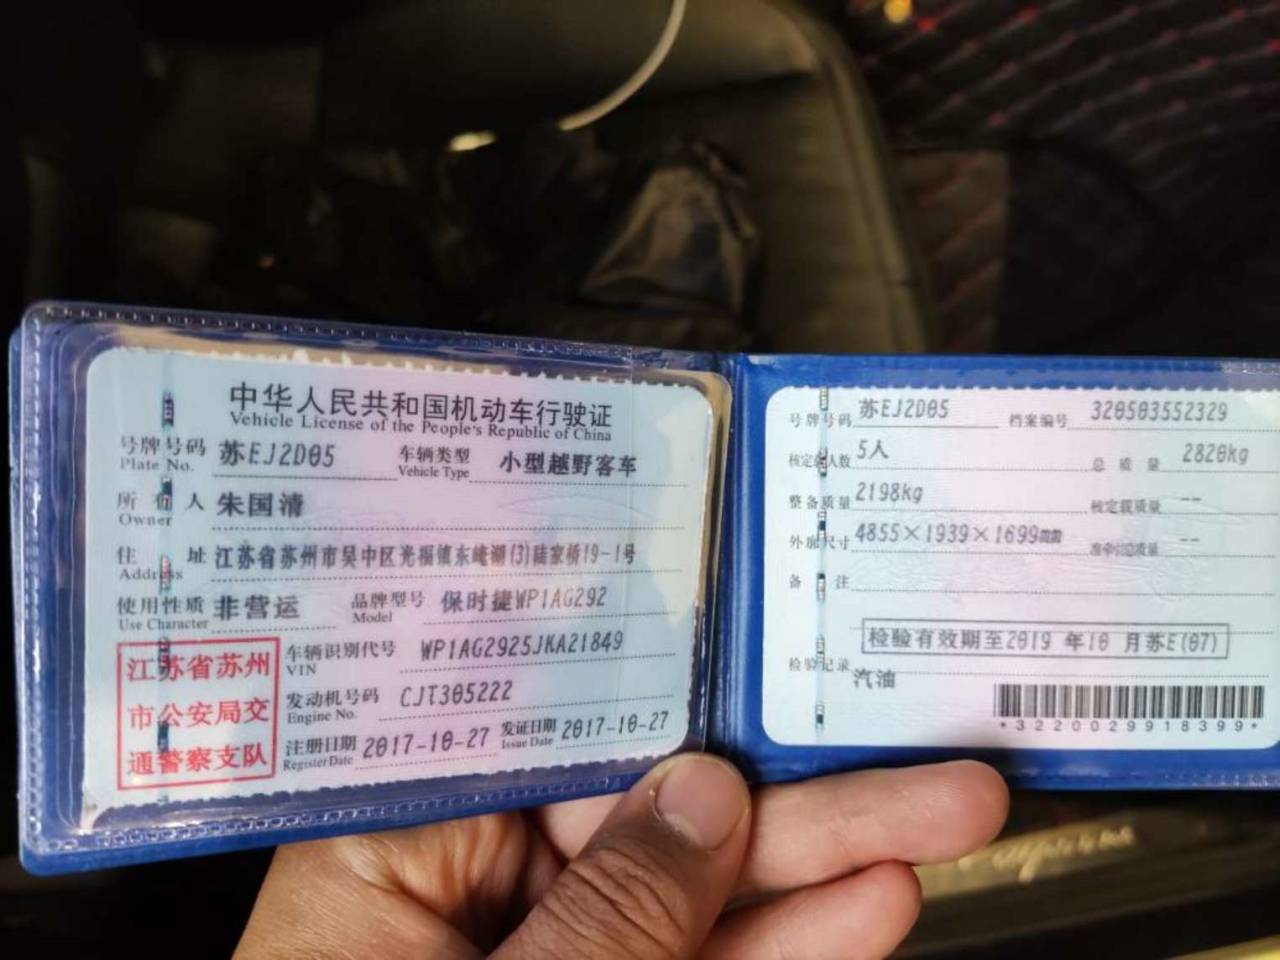 中华人民共和国机动车行驶证
Vehicle License of the People's Republic of China
号牌号码 苏EJ2D05 车辆类型 小型越野客车
Plate No. Vehicle Type
所有人 朱国清
Owner
住址 江苏省苏州市吴中区光福镇东崦湖(3)陆家桥19-1号
Address
使用性质 非营运 品牌型号 保时捷WP1AG292
Use Character Model
江苏省苏州
市公安局交
通警察支队
车辆识别代号 WP1AG2925JKA21849
VIN
发动机号码 CJT305222
Engine No.
注册日期 2017-10-27 发证日期 2017-10-27
Register Date Issue Date
号牌号码 苏EJ2D05 档案编号 320503552329
核定载人数 5人 总质量 2820kg
整备质量 2198kg 核定载质量 --
外廓尺寸 4855×1939×1699mm 准牵引总质量 --
备注
检验有效期至2019年10月苏E(07)
检验记录
汽油
*3220029918399*